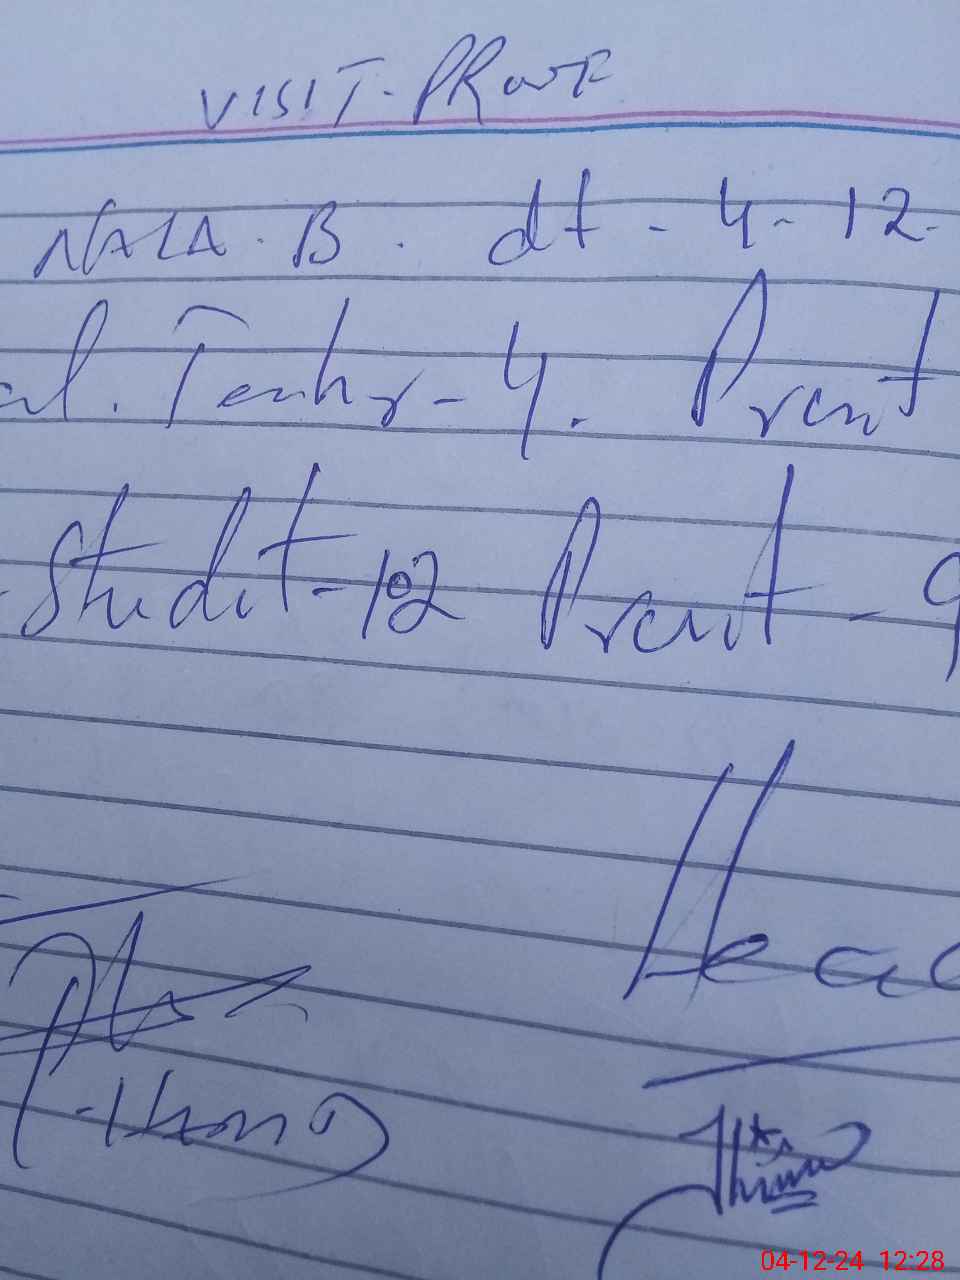 VISIT-PROOF
NALA. B. dt - 4-12-
al. Teachr-4. Prent
Studet-102 Prent - 9
Head
04-12-24 12:28